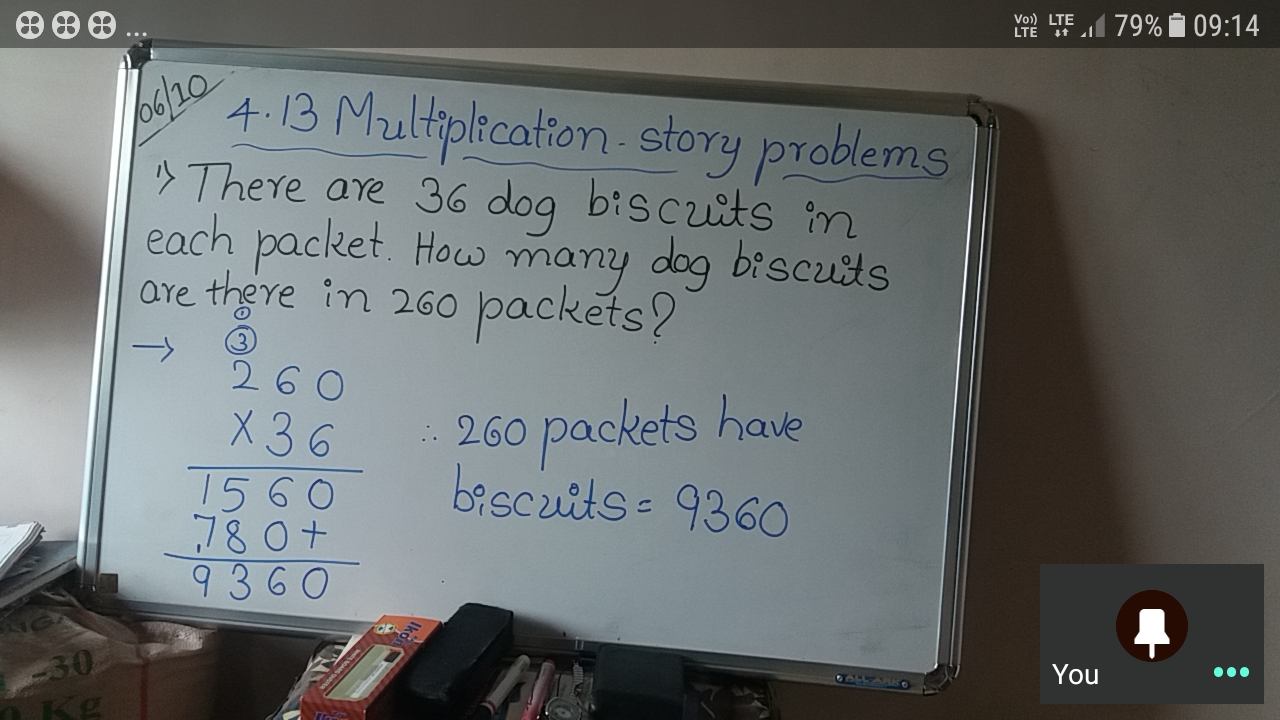 ... Vo)) LTE LTE 79% 09:14
06/10
4.13 Multiplication - story problems
1) There are 36 dog biscuits in
each packet. How many dog biscuits
are there in 260 packets?
→
1
3
260
X 36
1560
780+
9360
∴ 260 packets have
biscuits = 9360
-30
Kg
You